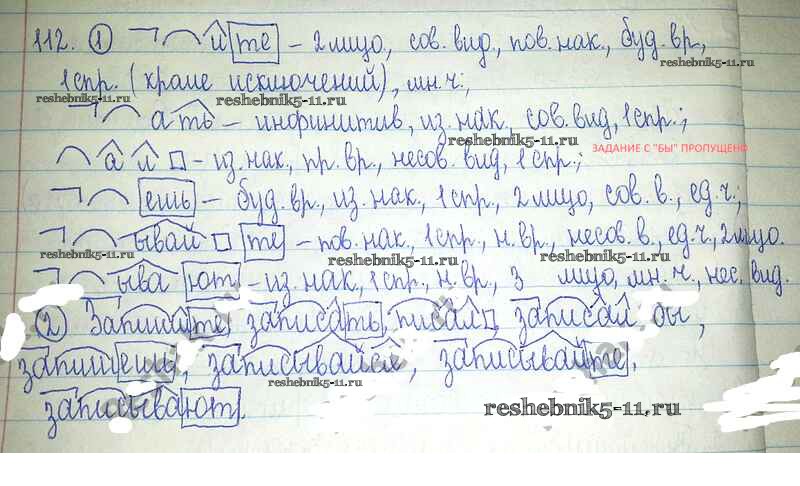 112. ① и те – 2 лицо, сов. вид, пов. нак., буд. вр.,
reshebnik5-11.ru
1 спр. (кроме исключений), мн.ч;
reshebnik5-11.ru reshebnik5-11.ru
ать – инфинитив, из. нак., сов. вид, 1 спр.;
reshebnik5-11.ru
а л – из. нак., пр. вр., несов. вид, 1 спр.; ЗАДАНИЕ С "БЫ" ПРОПУЩЕНО
ешь – буд. вр., из. нак., 1 спр., 2 лицо, сов. в., ед. ч.;
ывай те – пов. нак., 1 спр., н. вр., несов. в., ед. ч., 2 лицо.
reshebnik5-11.ru reshebnik5-11.ru reshebnik5-11.ru
ыва ют – из. нак., 1 спр., н. вр., 3 лицо, мн. ч., нес. вид.
② Запишите, записать, писал, записал бы,
запишешь, записывайся, записывайте,
reshebnik5-11.ru
записывают. reshebnik5-11.ru